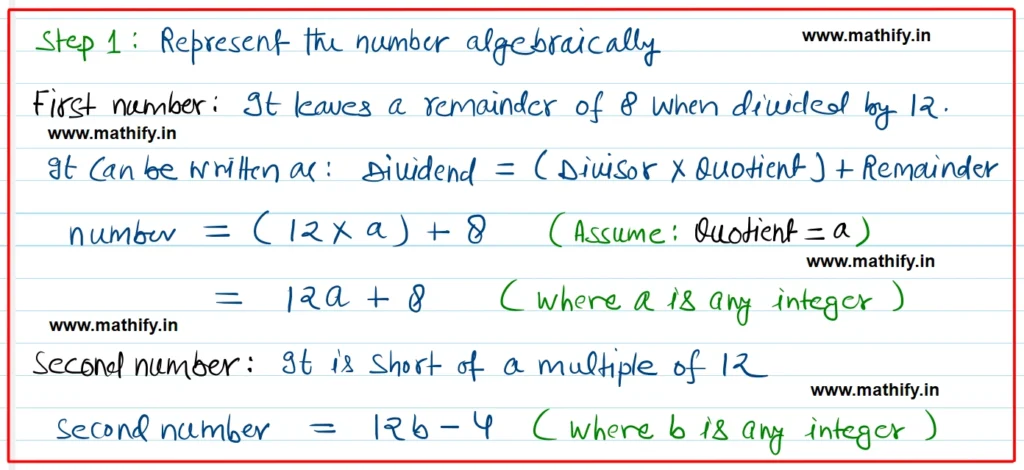 Step 1 : Represent the number algebraically www.mathify.in
First number : It leaves a remainder of 8 when divided by 12.
www.mathify.in
It can be written as : Dividend = ( Divisor × Quotient ) + Remainder
number = ( 12 × a ) + 8 ( Assume : Quotient = a )
www.mathify.in
= 12a + 8 ( where a is any integer )
www.mathify.in
Second number : It is short of a multiple of 12
www.mathify.in
second number = 12b - 4 ( where b is any integer )